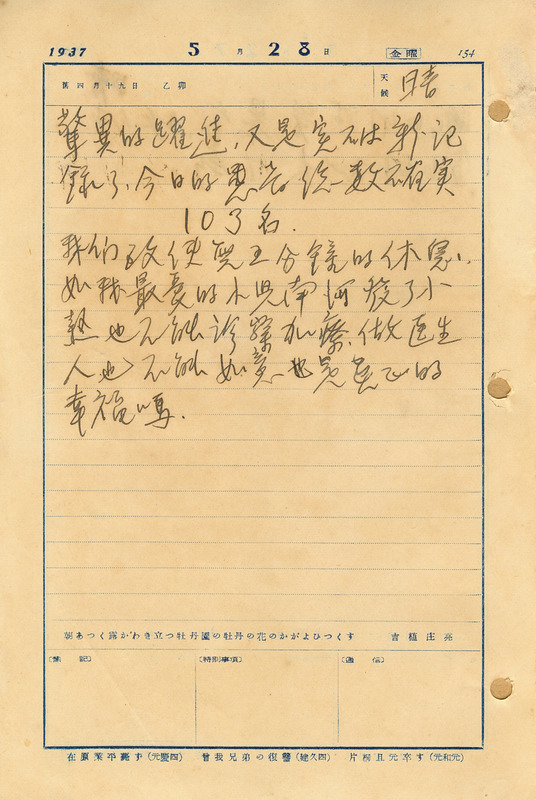 1937 5月28日 金曜 154
舊四月十九日 乙卯 天候 晴
驚異的躍進,又是突破新記
錄了,今日的患者總数確実
103名.
我们致使無五分鐘的休息,
如我最愛的小児南河發了小
熱也不能診察加療,做医生
人也不能如意也是真正的
幸福嗎.
朝あつく露かわき立つ牡丹園の牡丹の花のかがよひつくす 吉植庄亮
(雜記) (特別事項) (通信)
在原業平薨ず(元慶四) 曾我兄弟の復讐(建久四) 片桐且元卒す(元和元)